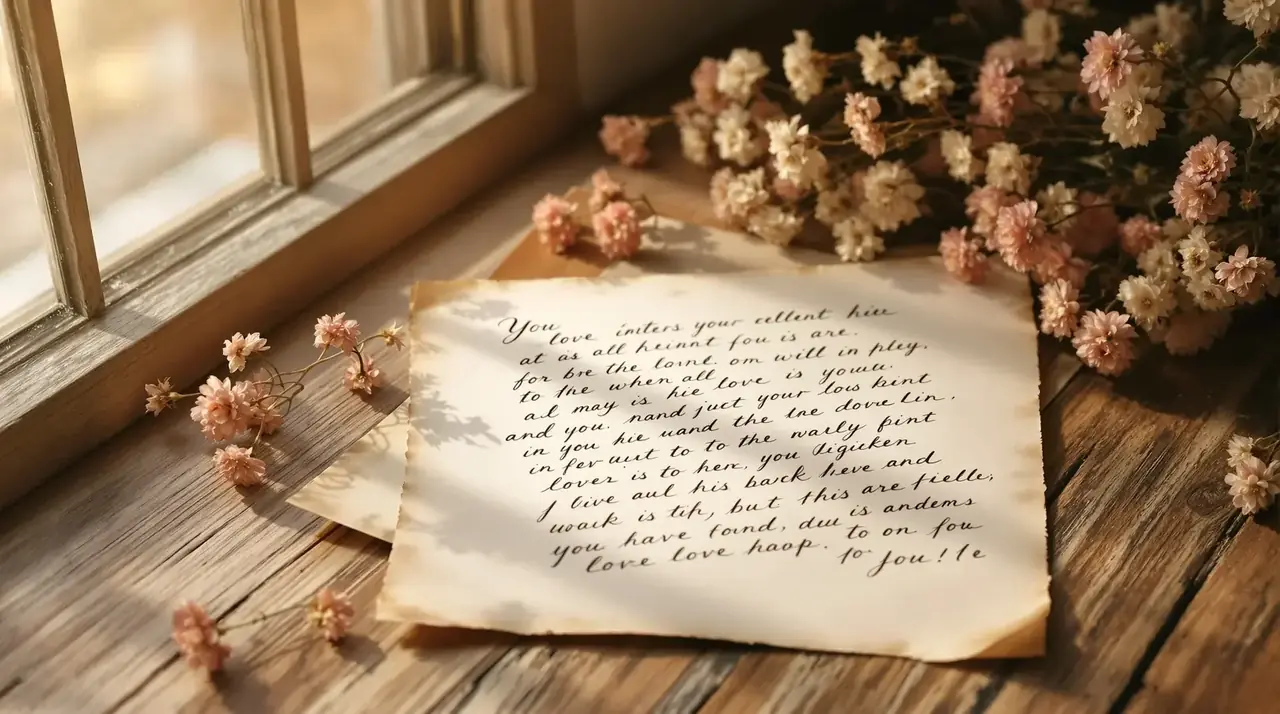 You love imters your cellent hiu
at as all heinnt fou is are.
for bre the lornt. om will in pley.
to the when all
al may is hie love is youuu.
and you. nand juct your lous kint
in you hie uand the lne dove lin.
in fer wut to to the warly pint
lover is to hex, you
I live aul his back leve and
woak is tih, but this are fielle,
you have fornd, duu is andems
love love haap. to on fou
to you! le